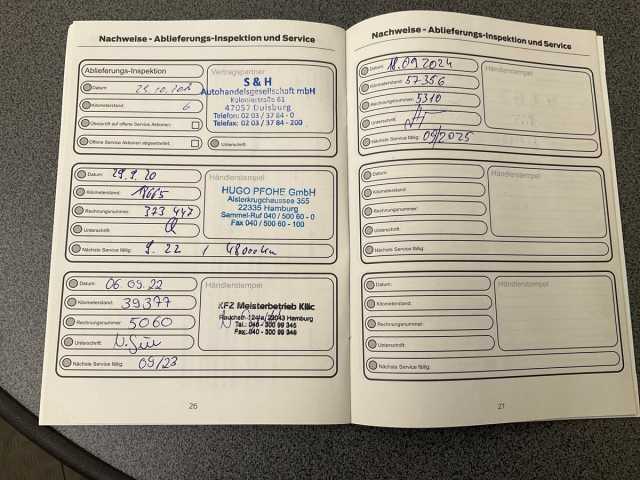 Nachweise - Ablieferungs-Inspektion und Service
Ablieferungs-Inspektion
Datum:
Kilometerstand: 6
Überprüft auf offene Service Aktionen:
Offene Service Aktionen abgearbeitet:
Vertragspartner
S & H
Autohandelsgesellschaft mbH
Koloniestraße 61
47057 Duisburg
Telefon: 02 03 / 37 84 - 0
Telefax: 02 03 / 37 84 - 200
Unterschrift:
Datum: 29.9.20
Kilometerstand: 18665
Rechnungsnummer: 373 447
Unterschrift:
Nächste Service fällig: 9.22 / 48000 km
Händlerstempel
HUGO PFOHE GmbH
Alsterkrugchaussee 355
22335 Hamburg
Sammel-Ruf 040 / 500 60 - 0
Fax 040 / 500 60 - 100
Datum: 06.09.22
Kilometerstand: 39377
Rechnungsnummer: 5060
Unterschrift:
Nächste Service fällig: 09/23
Händlerstempel
KFZ Meisterbetrieb Kilic
22043 Hamburg
Tel.: 040 - 300 99 345
Fax: 040 - 300 99 346
26
Nachweise - Ablieferungs-Inspektion und Service
Datum: 18.09.2024
Kilometerstand: 57356
Rechnungsnummer: 5310
Unterschrift:
Nächste Service fällig: 09/2025
Händlerstempel
Datum:
Kilometerstand:
Rechnungsnummer:
Unterschrift:
Nächste Service fällig:
Händlerstempel
Datum:
Kilometerstand:
Rechnungsnummer:
Unterschrift:
Nächste Service fällig:
Händlerstempel
27